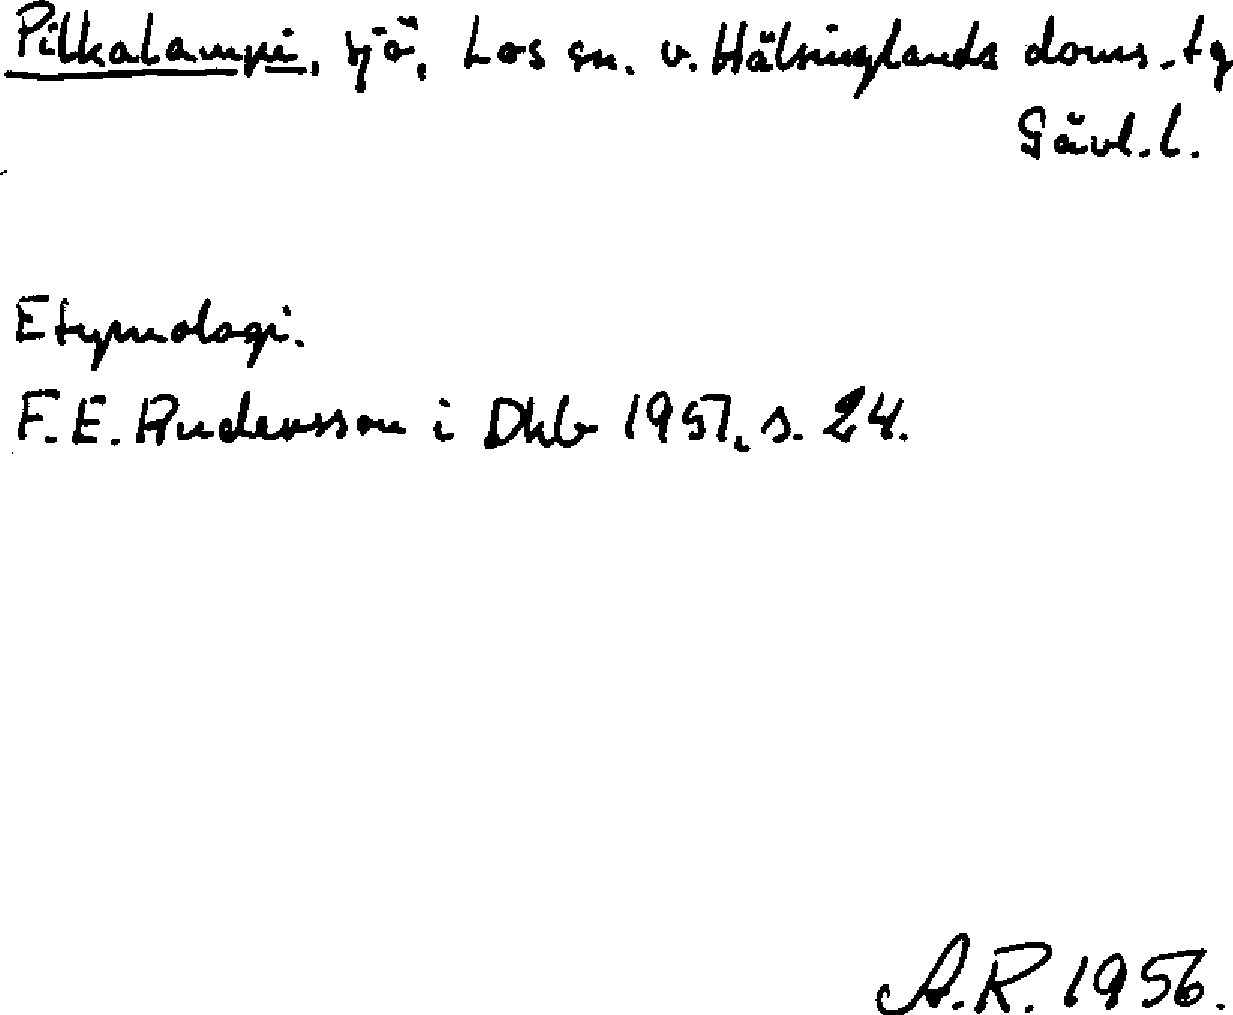 Pilkalampi, tjä, Los sn. v. Hälsinglands doms. tg
Gävl. l.
Etymologi.
F. E. Andersson i Dhb 1951, s. 24.
A. R. 1956.